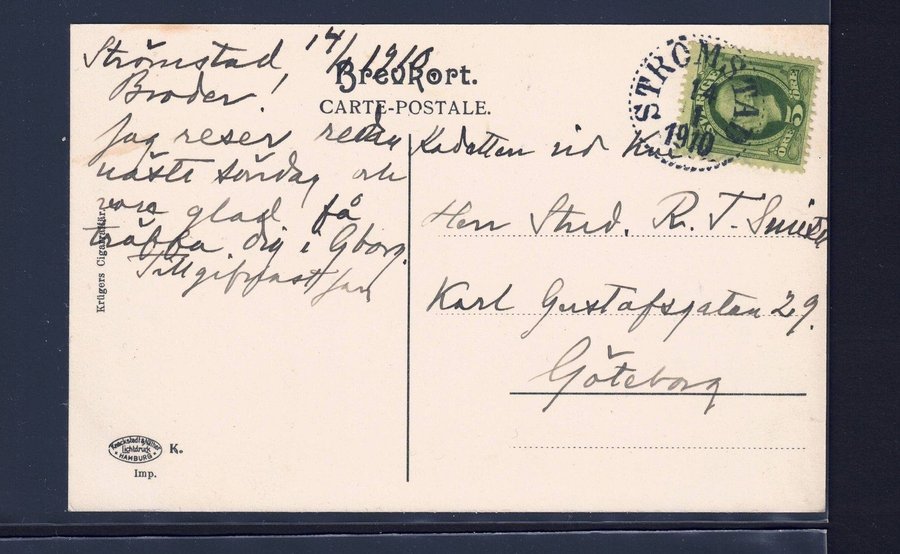 Strömstad 14/1 1910.
Broder!
Jag reser redan
näste söndag och
vore glad få
träffa dig i Gborg.
Tillgifnast Jan
Brevkort.
CARTE-POSTALE.
STRÖMSTAD
14
1
1910
5
ÖRE
Kadetten vid
Herr Stud. R. T.
Karl Gustafsgatan 29.
Göteborg
Krügers Cigarraffär.
Knackstedt & Näther
Lichtdruck
HAMBURG
K.
Imp.